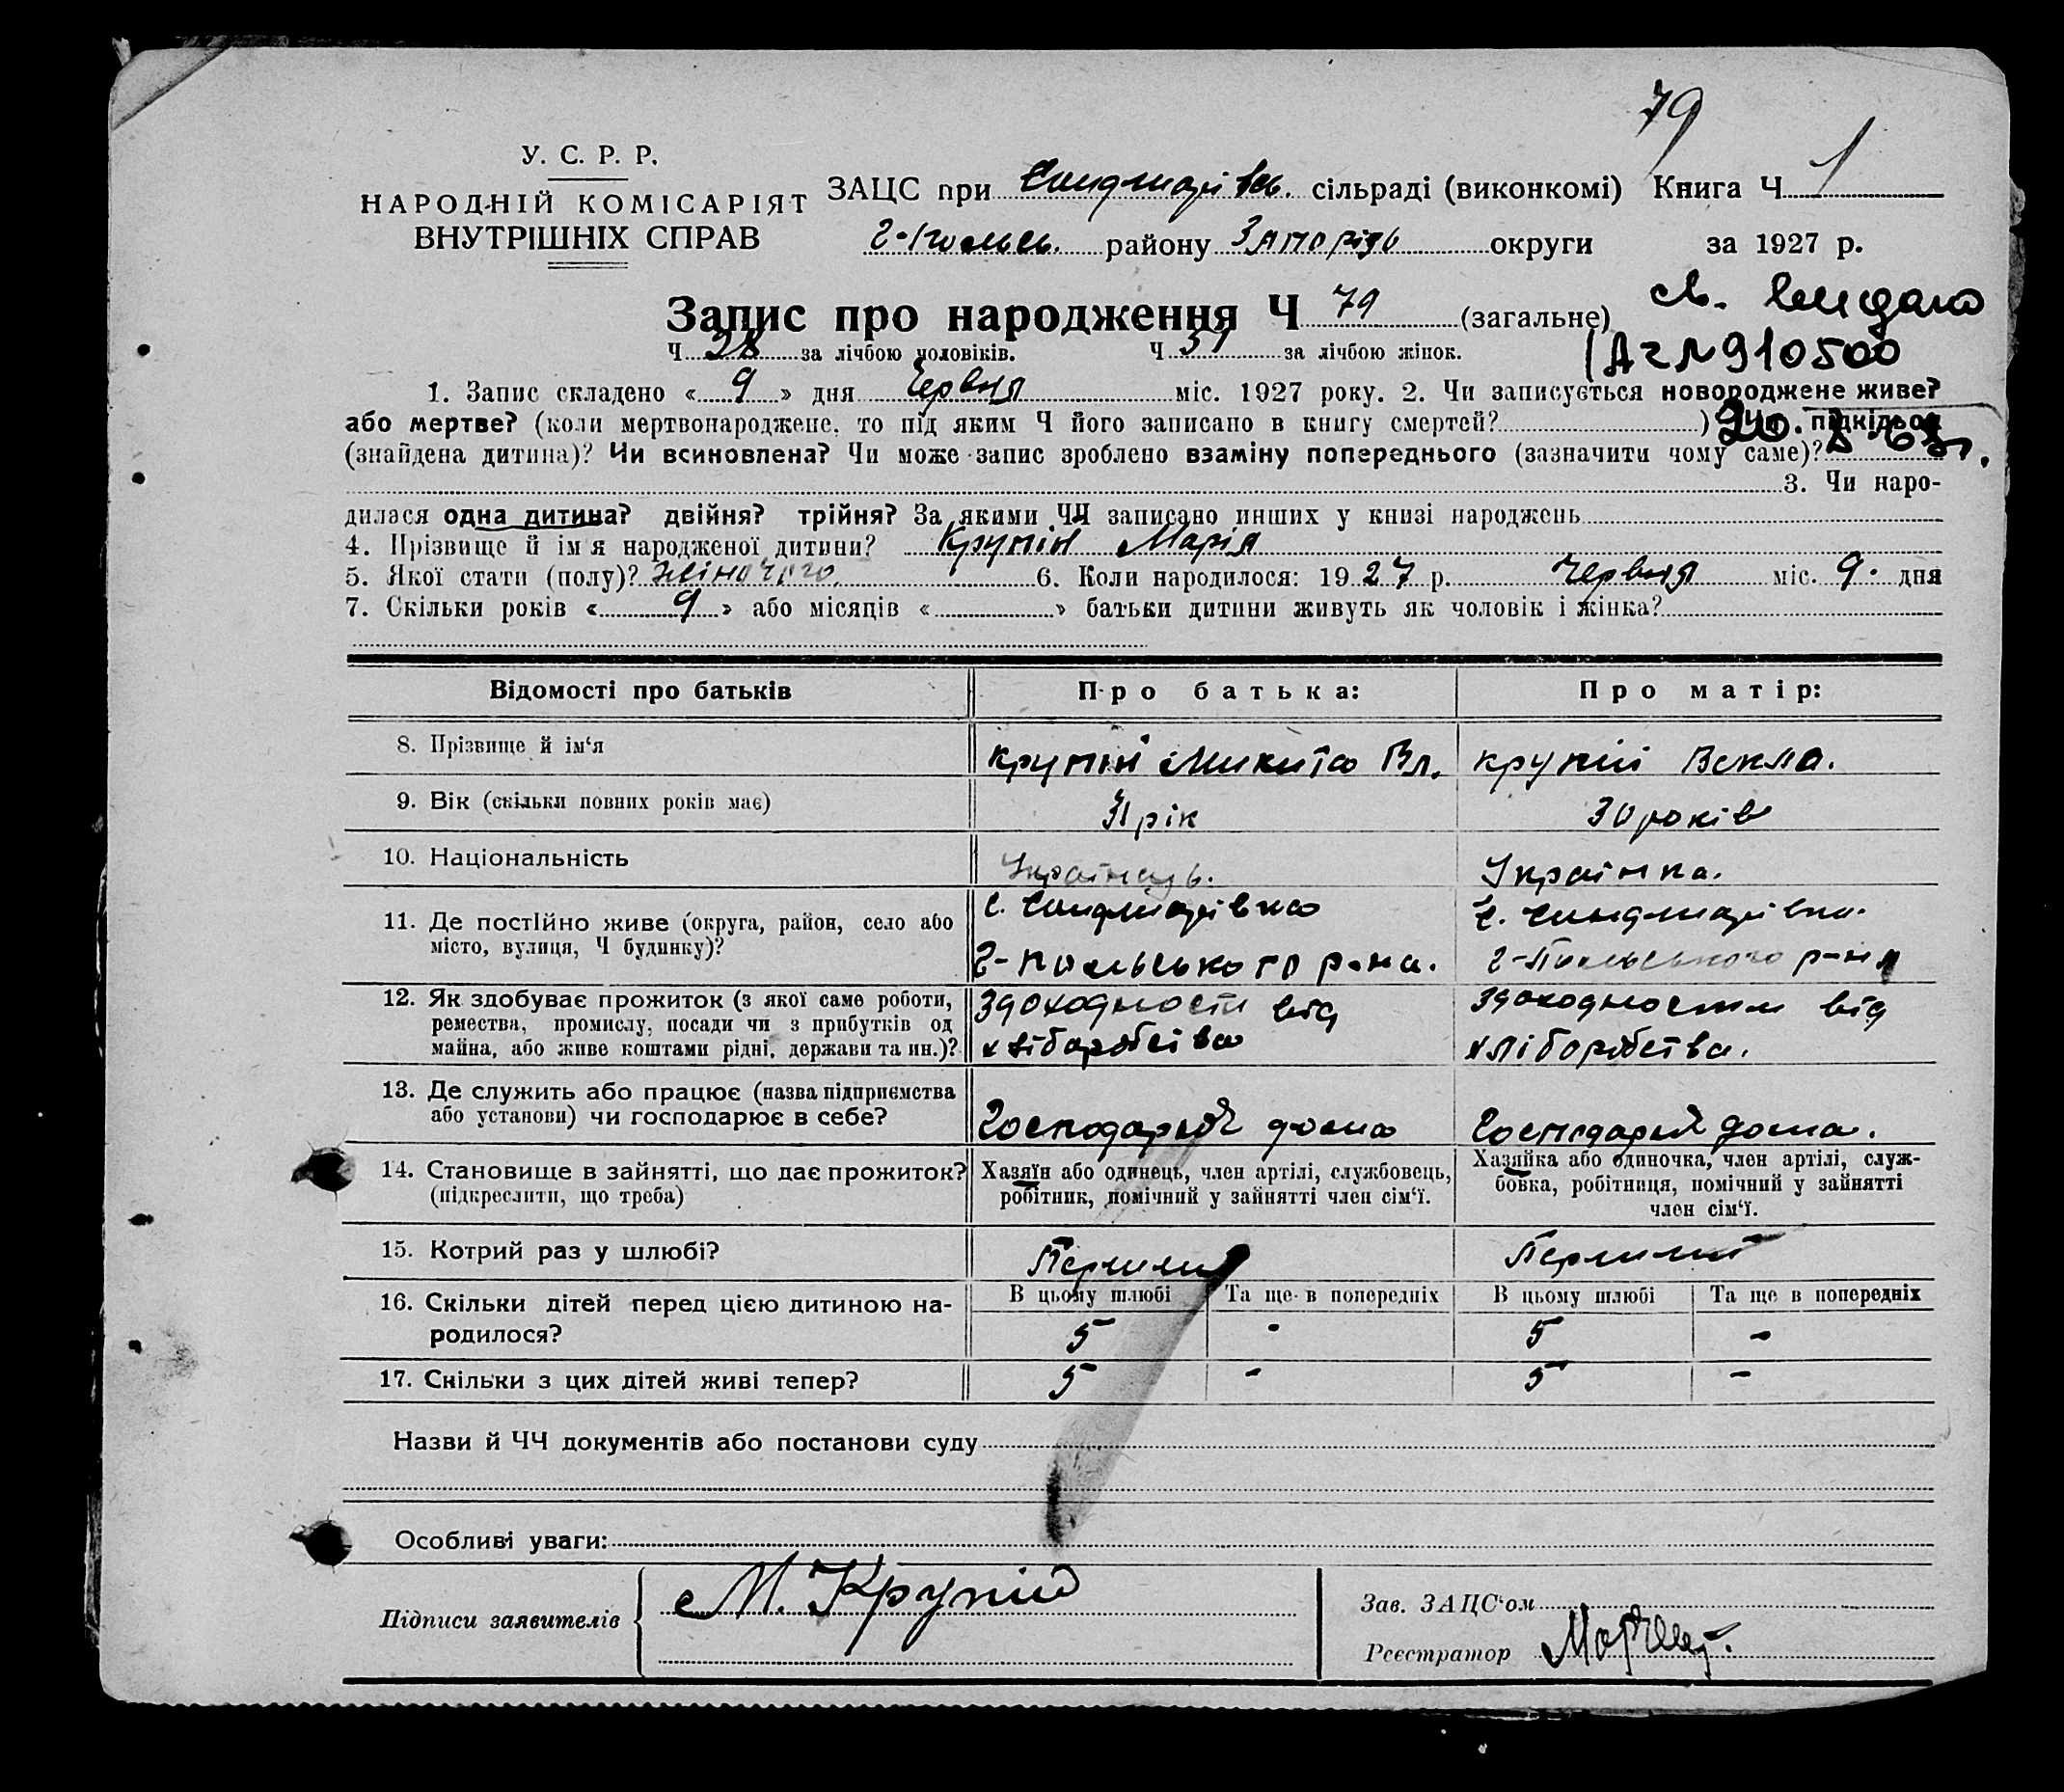 79
У. С. Р. Р.
НАРОДНІЙ КОМІСАРІЯТ
ВНУТРІШНІХ СПРАВ
ЗАЦС при сільраді (виконкомі) Книга Ч 1
району Запорізь округи за 1927 р.
Запис про народження Ч 79 (загальне)
Ч за лічбою чоловіків. Ч за лічбою жінок.
910500
1. Запис складено « 9 » дня Червня міс. 1927 року. 2. Чи записується новороджене живе?
або мертве? (коли мертвонароджене, то під яким Ч його записано в книгу смертей? ) підкідьок
(знайдена дитина)? Чи всиновлена? Чи може запис зроблено взаміну попереднього (зазначити чому саме)?
3. Чи наро-
дилася одна дитина? двійня? трійня? За якими ЧЧ записано инших у книзі народжень
4. Прізвище й ім'я народженої дитини? Крупій Марія
5. Якої статі (полу)? жіночого 6. Коли народилося: 1927 р. червня міс. 9. дня
7. Скільки років « 9 » або місяців « » батьки дитини живуть як чоловік і жінка?
Відомості про батьків Про батька: Про матір:
8. Прізвище й ім'я Крупій Микита Вл. Крупій Векла.
9. Вік (скільки повних років має) 31 рік 30 років
10. Національність Українець. Українка.
11. Де постійно живе (округа, район, село або
місто, вулиця, Ч будинку)?
12. Як здобуває прожиток (з якої саме роботи,
ремества, промислу, посади чи з прибутків од
майна, або живе коштами рідні, держави та ин.)?
здоходности від
хліборобства
здоходности від
хліборобства.
13. Де служить або працює (назва підприємства
або установи) чи господарює в себе?
Господарює дома Господарює дома.
14. Становище в зайнятті, що дає прожиток?
(підкреслити, що треба)
Хазяїн або одинець, член артілі, службовець,
робітник, помічний у зайнятті член сім'ї.
Хазяйка або одиночка, член артілі, служ-
бовка, робітниця, помічний у зайнятті
член сім'ї.
15. Котрий раз у шлюбі? Перший Перший
16. Скільки дітей перед цією дитиною на-
родилося?
В цьому шлюбі Та ще в попередніх В цьому шлюбі Та ще в попередніх
5 - 5 -
17. Скільки з цих дітей живі тепер? 5 - 5 -
Назви й ЧЧ документів або постанови суду
Особливі уваги:
Підписи заявителів М. Крупій
Зав. ЗАЦС'ом
Реєстратор